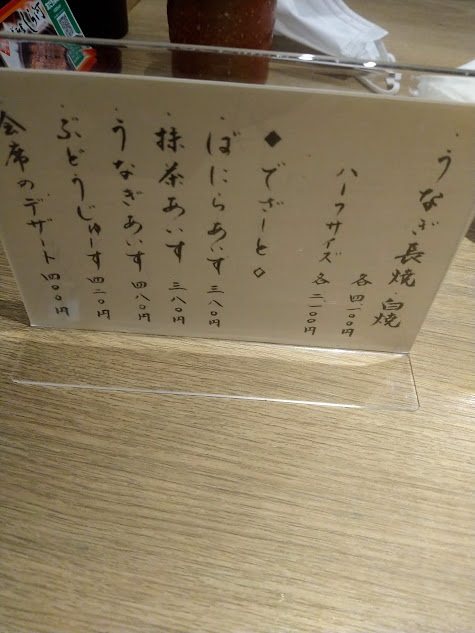 ・うなぎ長焼・白焼
各四二〇〇円
ハーフサイズ 各二一〇〇円
◆でざーと◇
・ばにらあいす 三八〇円
・抹茶あいす 三八〇円
・うなぎあいす 四八〇円
・ぶどうじゅーす 四二〇円
・会席のデザート 四〇〇円